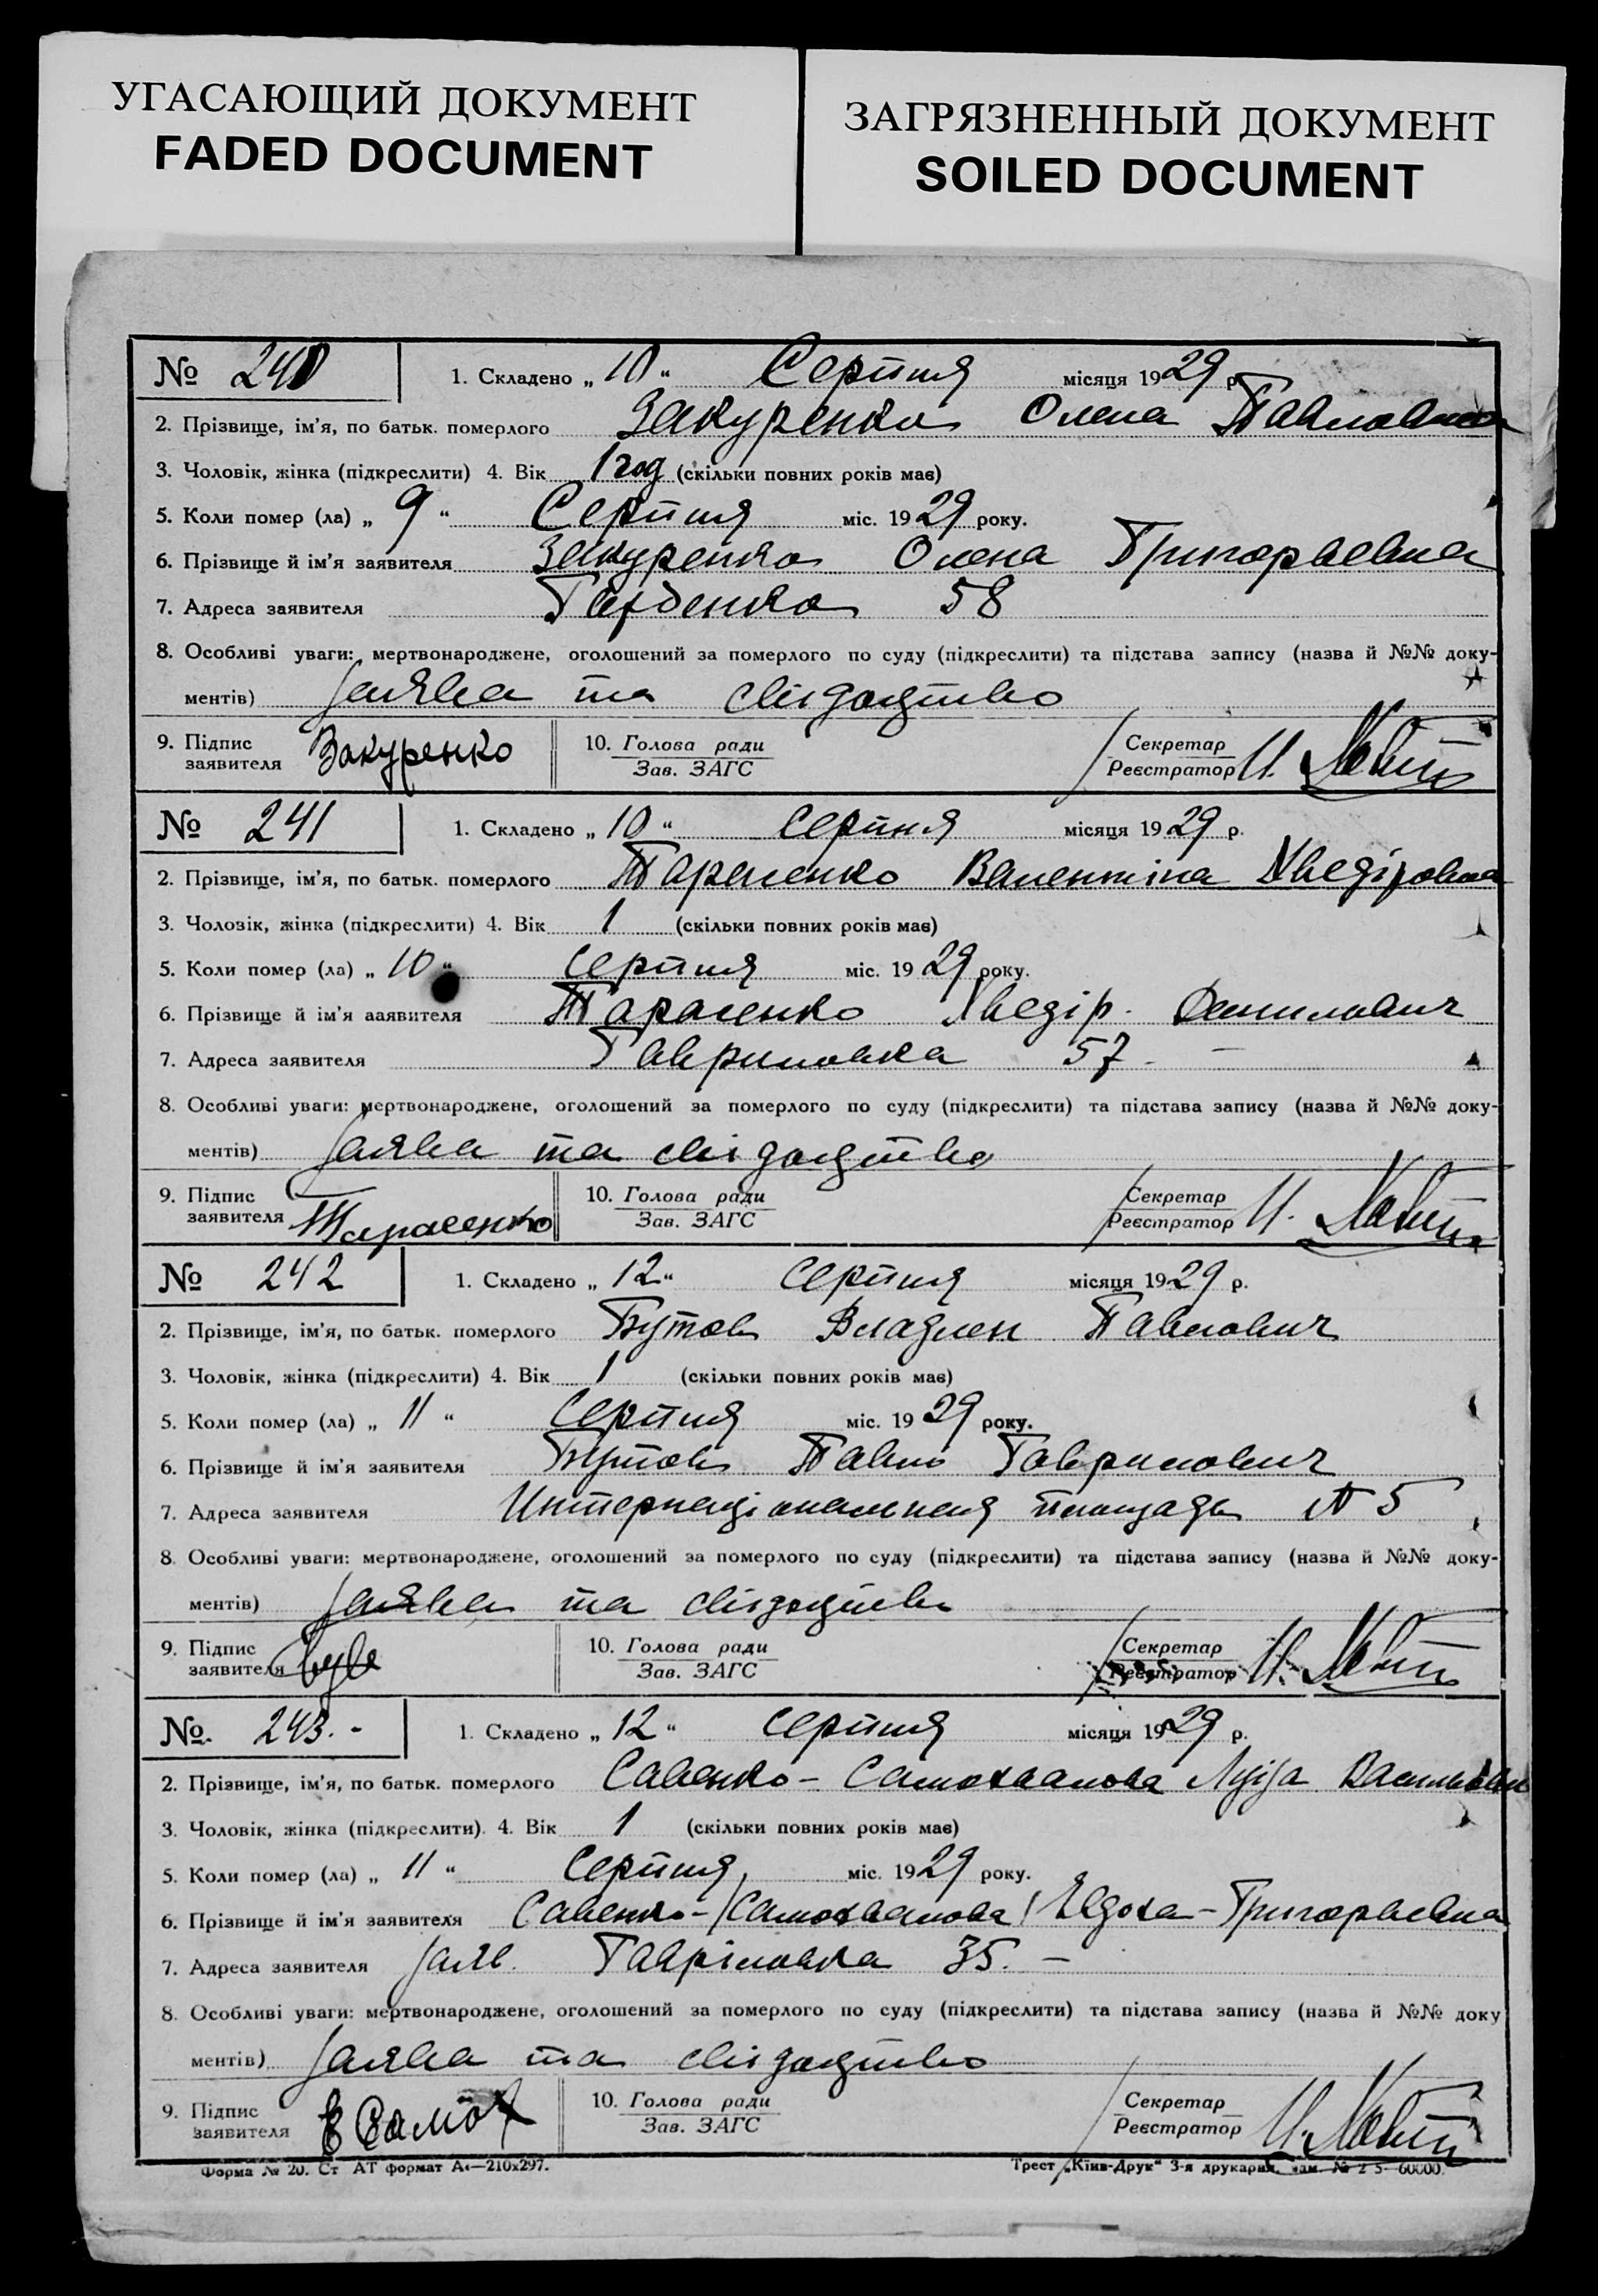 УГАСАЮЩИЙ ДОКУМЕНТ
FADED DOCUMENT
ЗАГРЯЗНЕННЫЙ ДОКУМЕНТ
SOILED DOCUMENT
№ 240 1. Складено „ 10 “ Серпня місяця 1929 р.
2. Прізвище, ім'я, по батьк. померлого Закуренко Олена Павловна
3. Чоловік, жінка (підкреслити) 4. Вік 1 год (скільки повних років має)
5. Коли помер (ла) „ 9 “ Серпня міс. 1929 року.
6. Прізвище й ім'я заявителя Закуренко Олена Григорьевна
7. Адреса заявителя 58
8. Особливі уваги: мертвонароджене, оголошений за померлого по суду (підкреслити) та підстава запису (назва й №№ доку-
ментів) Заява та свідоцтво
9. Підпис заявителя Закуренко 10. Голова ради Зав. ЗАГС Секретар Реєстратор
№ 241 1. Складено „ 10 “ Серпня місяця 1929 р.
2. Прізвище, ім'я, по батьк. померлого Тарасенко Валентіна Хведіровна
3. Чоловік, жінка (підкреслити) 4. Вік 1 (скільки повних років має)
5. Коли помер (ла) „ 10 “ Серпня міс. 1929 року.
6. Прізвище й ім'я заявителя Тарасенко Хведір. Данилович
7. Адреса заявителя Гавриловка 57. —
8. Особливі уваги: мертвонароджене, оголошений за померлого по суду (підкреслити) та підстава запису (назва й №№ доку-
ментів) Заява та свідоцтво
9. Підпис заявителя Тарасенко 10. Голова ради Зав. ЗАГС Секретар Реєстратор
№ 242 1. Складено „ 12 “ Серпня місяця 1929 р.
2. Прізвище, ім'я, по батьк. померлого Бутов Владлен Павлович
3. Чоловік, жінка (підкреслити) 4. Вік 1 (скільки повних років має)
5. Коли помер (ла) „ 11 “ Серпня міс. 1929 року.
6. Прізвище й ім'я заявителя Бутов Павло Гаврилович
7. Адреса заявителя Интернаціональная площадь № 5
8. Особливі уваги: мертвонароджене, оголошений за померлого по суду (підкреслити) та підстава запису (назва й №№ доку-
ментів) Заява та свідоцтво
9. Підпис заявителя 10. Голова ради Зав. ЗАГС Секретар Реєстратор
№ 243. - 1. Складено „ 12 “ Серпня місяця 1929 р.
2. Прізвище, ім'я, по батьк. померлого Савенко - Самохвалова Луіза Васильевна
3. Чоловік, жінка (підкреслити). 4. Вік 1 (скільки повних років має)
5. Коли помер (ла) „ 11 “ Серпня міс. 1929 року.
6. Прізвище й ім'я заявителя Савенко - (Самохвалова) Евдоха - Григорьевна
7. Адреса заявителя Гавріловка 35. —
8. Особливі уваги: мертвонароджене, оголошений за померлого по суду (підкреслити) та підстава запису (назва й №№ доку
ментів) Заява та свідоцтво
9. Підпис заявителя Е Самох 10. Голова ради Зав. ЗАГС Секретар Реєстратор
Форма № 20. Ст АТ формат А₄—210х297. Трест „Київ-Друк“ 3-я друкарня,